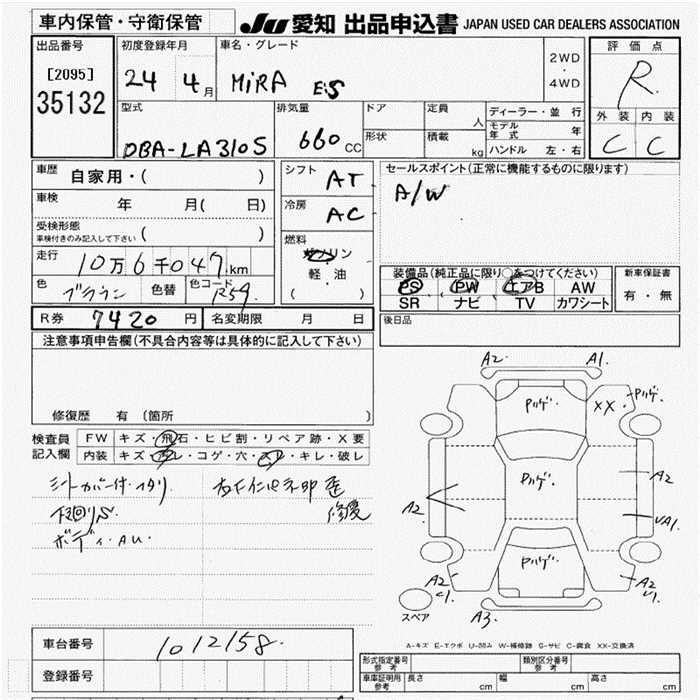 車内保管・守衛保管
JU 愛知 出品申込書 JAPAN USED CAR DEALERS ASSOCIATION
出品番号
[2095]
35132
初度登録年月
24 4月
車名・グレード
MiRA E:S
2WD
・
4WD
評価点
R
外装 内装
C C
型式
DBA-LA310S
排気量
660 CC
ドア
形状
定員 人
積載 kg
ディーラー・並行
モデル年式 年
ハンドル 左・右
車歴 自家用・( )
車検 年 月( 日)
受検形態
車検付きのみ記入して下さい ( )
走行 10万6千047km
色 ブラウン 色替 色コード R59
R券 7420 円 名変期限 月 日
シフト AT
冷房 AC
燃料
ガソリン
軽・油
( )
セールスポイント(正常に機能するものに限ります)
A/W
装備品(純正品に限り○をつけてください)
PS PW エアB AW
SR ナビ TV カワシート
新車保証書
有・無
後日品
注意事項申告欄(不具合内容等は具体的に記入して下さい)
修復歴 有 (箇所 )
検査員
記入欄
FW キズ・飛石・ヒビ割・リペア跡・X要
内装 キズ・汚レ・コゲ・穴・スレ・キレ・破レ
シートカバー付・
下回りS
ボディ・AU.
修復
A2. A1.
パツゲ
パツゲ
XX
パツゲ.
A2
A2.
UA1.
パツゲ.
A2
C1.
A2
U1.
スペア
A3.
A-キズ E-エクボ U-凹み W-補修跡 S-サビ C-腐食 XX-交換済
車台番号 1012158.
登録番号
形式指定番号
参考
類別区分番号
参考
車庫証明用
参考
長さ cm 幅 cm 高さ cm